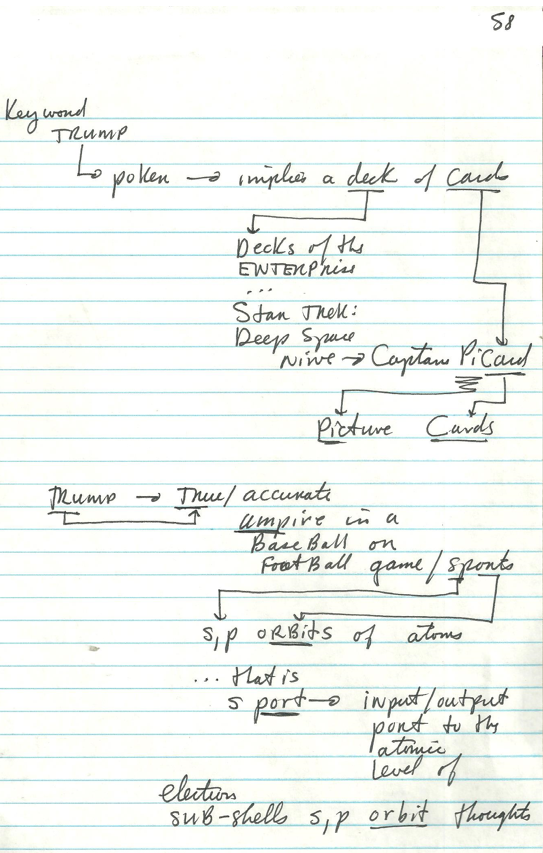 58
Keyword
TRUMP
poker → implies a deck of cards
Decks of the
ENTERPRise
...
Star Trek:
Deep Space
Nine → Captain PiCard
Picture Cards
TRump → True/accurate
umpire in a
BaseBall or
FootBall game/sports
s,p ORBits of atoms
... that is
s port → input/output
port to the
atomic
level of
electron
SUB-shells s,p orbit thoughts